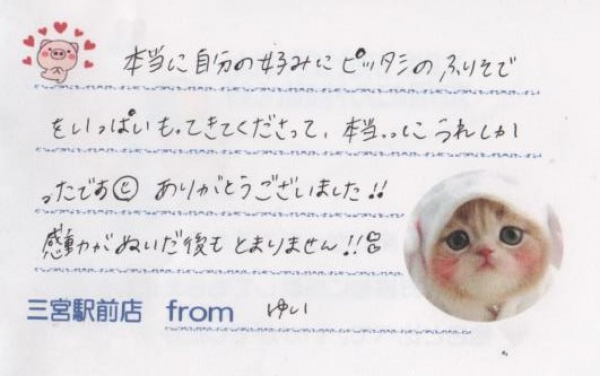 本当に自分の好みにピッタシのふりそで
をいっぱいもってきてくださって、本当っにうれしか
ったです ありがとうございました!!
感動がぬいだ後もとまりません!!
三宮駅前店 from ゆい